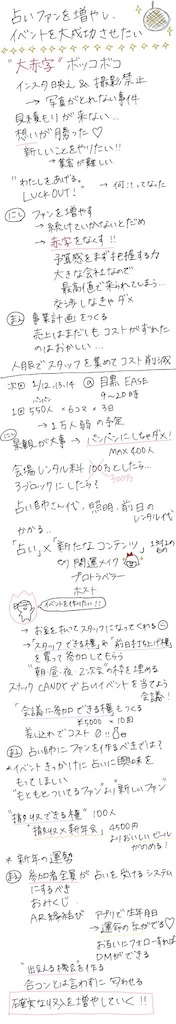 占いファンを増やし、
イベントを大成功させたい
"大赤字" ボッコボコ
インスタ映え & 撮影禁止
→ 写真がとれない事件
見積もりが来ない…
想いが勝った♡
新しいことをやりたい!!
→ 集客が難しい
"わたしをあげる。
LUCK OUT!" → 何!?ってなった
にし ファンを増やす
→ 続けていかないとだめ
→ 赤字をなくす!!
予算感をまず把握する力
大きな会社なので
最高値で来られてしまう…
交渉しなきゃダメ
まえ 事業計画をつくる
売上はまだしもコストがずれた
のはおかしい…
人月でスタッフを集めてコスト削減
次回 2/12.13.14 @ 目黒 EASE
パンパン 9〜20時
1回 550人 × 6コマ × 3日
→ 1万人弱の予定
にし 景観が大事 → パンパンにしちゃダメ!
MAX 400人
会場レンタル料 100万としたら…
300万
3ブロックにしたら?
占い師さん代、照明、前日の
レンタル代
かかる…
「占い」×「新たなコンテンツ」 1対1のもの
例) 開運メイク
プロトラベラー
ホスト
イベントを作りたい!!
→ お金を払ってスタッフになってくれる〜
→「スタッフできる権」や「前日打ち上げ権」
を買って参加してもらう
"朝・昼・夜 2次会"の枠を埋める
スナックCANDYで占いイベントを当てよう
会議!
「会議に参加できる権」もつくる
¥5000 × 10回
差し入れでコスト0!!
まえ 占い師にファンを作るべきでは?
*イベントきっかけに占いに興味を
もってほしい
"もともとついてるファン" より "新しいファン"
"招待収できる権" 100人
"× 新年会" 4500円
よりおいしいビール
がのめる!
* 新年の運勢
まえ 参加者全員が占いを受けるシステム
にするべき
おみくじ
AR縁結び アプリで生年月日
→ 運命の糸がでる♡
お互いにフォローすれば
DMができる
"出会える機会"を作る
合コンとは言わずに匂わせる
確実な収入を増やしていく!!